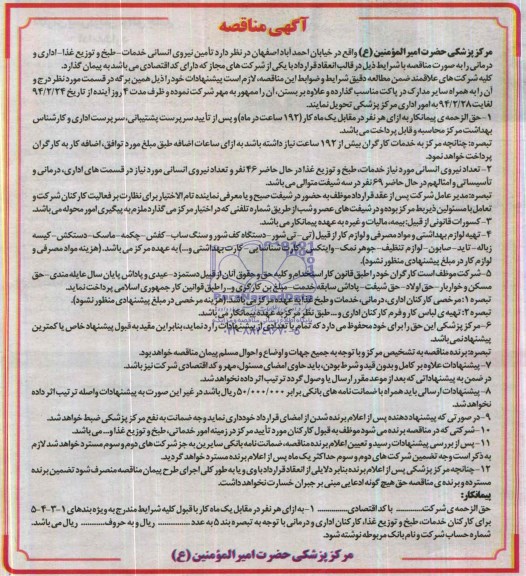 آگهی مناقصه
مرکز پزشکی حضرت امیرالمؤمنین (ع) واقع در خیابان احمدآباد اصفهان در نظر دارد تأمین نیروی انسانی خدمات-طبخ و توزیع غذا-اداری و
درمانی را به صورت مناقصه با شرایط ذیل در قالب انعقاد قرارداد با یکی از شرکت های مجاز که دارای کد اقتصادی می باشد به پیمان گذارد.
کلیه شرکت های علاقمند ضمن مطالعه دقیق شرایط و ضوابط این مناقصه، لازم است پیشنهادات خود را ذیل همین برگه در قسمت مورد نظر درج و
آن را به همراه سایر مدارک در پاکت مناسب گذارده و علاوه بر بستن، آن را ممهور به مهر شرکت نموده و ظرف مدت ۴ روز آینده از تاریخ ۹۴/۲/۲۴
لغایت ۹۴/۲/۲۸ به امور اداری مرکز پزشکی تحویل نمایند.
۱-حق الزحمه ی پیمانکار به ازای هر نفر در مقابل یک ماه کار (۱۹۲ ساعت در ماه) و پس از تأیید سرپرست پشتیبانی، سرپرست اداری و کارشناس
بهداشت مرکز محاسبه و قابل پرداخت می باشد.
تبصره: چنانچه مرکز به خدمات کارگران بیش از ۱۹۲ ساعت نیاز داشته باشد به ازای ساعات اضافه طبق مبلغ مورد توافق، اضافه کار به کارگران
پرداخت خواهد نمود.
۲-تعداد نیروی انسانی مورد نیاز خدمات، طبخ و توزیع غذا در حال حاضر ۴۶ نفر و تعداد نیروی انسانی مورد نیاز در قسمت های اداری، درمانی و
تأسیساتی و امثالهم در حال حاضر ۶۹ نفر در سه شیفت متوالی می باشد.
تبصره: مدیر عامل شرکت پس از عقد قرارداد موظف به حضور در شیفت صبح و یا معرفی نماینده تام الاختیار برای نظارت بر فعالیت کارکنان شرکت و
تعامل با مسئولین ذیربط مرکز بوده و در شیفت های عصر و شب از طریق شماره تلفنی که در اختیار مرکز می گذارد ملزم به پیگیری امور محوله می باشد.
۳-کسورات قانونی از قبیل: بیمه، مالیات و غیره به عهده پیمانکار می باشد.
۴-تهیه لوازم بهداشتی و مواد مصرفی و لوازم کار از قبیل (تی-تی شور-دستگاه کف شور و سنگ ساب-کفش-چکمه-ماسک-دستکش-کیسه
زباله-تاید-صابون-لوازم تنظیف-جوهرنمک-وایتکس-کارت شناسایی-کارت بهداشتی و...) به عهده مرکز می باشد. (هزینه مواد مصرفی و
لوازم کار در مبلغ پیشنهادی منظور نشود).
۵-شرکت موظف است کارگران خود را طبق قانون کار استخدام و کلیه حق و حقوق آنان از قبیل دستمزد-عیدی و پاداش پایان سال عایله مندی-حق
مسکن و خواربار-حق اولاد-حق شیفت-پاداش سابقه خدمت-مبلغ بن کارگری و... را طبق قوانین کار جمهوری اسلامی پرداخت نماید.
تبصره ۱: مرخصی کارکنان اداری، درمانی، خدمات و طبخ غذا به عهده مرکز می باشد. (هزینه مرخصی در مبلغ پیشنهادی منظور نشود).
تبصره ۲: تهیه ی لباس کار و فرم کارکنان اداری و... طبق نظر مرکز به عهده پیمانکار می باشد.
۶-مرکز پزشکی این حق را برای خود محفوظ می دارد که تمام یا تعدادی از پیشنهادات را رد نماید، بنابراین مقید به قبول پیشنهاد خاص یا کمترین
پیشنهاد نمی باشد.
تبصره: برنده مناقصه به تشخیص مرکز و با توجه به جمیع جهات و اوضاع و احوال مسلم پیمان مناقصه خواهد بود.
۷-پیشنهادات علاوه بر کامل و بدون قید و شرط بودن، باید حاوی امضای مسئول، مهر و کد اقتصادی شرکت نیز باشد.
در ضمن به پیشنهاداتی که بعد از موعد مقرر ارسال یا وصول گردد ترتیب اثر داده نخواهد شد.
۸-پیشنهادات ارسالی باید همراه با ضمانت نامه های بانکی برابر ۵۰/۰۰۰/۰۰۰ ریال باشد در غیر این صورت به پیشنهادات واصله ترتیب اثر داده
نخواهد شد.
۹-در صورتی که پیشنهاد دهنده پس از اعلام برنده شدن از امضای قرارداد خودداری نماید وجه ضمانت به نفع مرکز پزشکی ضبط خواهد شد.
۱۰-شرکتی که در مناقصه برنده می شود موظف به قبول کارکنان مورد تأیید مرکز در زمینه امور خدماتی، طبخ و توزیع غذا و... می باشد.
۱۱-پس از بررسی پیشنهادات رسید و تعیین اعلام برنده مناقصه، ضمانت نامه بانکی سایرین به جز شرکت های دوم و سوم مسترد خواهد شد لازم
به ذکر است وجه تضمین شرکت های دوم و سوم حداکثر یک ماه پس از اعلام برنده مسترد خواهد گردید.
۱۲-چنانچه مرکز پزشکی پس از اعلام برنده بنابر دلایلی از انعقاد قرارداد با وی و یا به طور کلی اجرای طرح پیمان مناقصه منصرف شود تضمین برنده
مسترد و برنده ی مناقصه حق هیچ گونه ادعایی مبنی بر جبران خسارت نخواهد داشت.
پیمانکار:
حق الزحمه ی شرکت .............. با کد اقتصادی .............. ۱-به ازای هر نفر در مقابل یک ماه کار با قبول کلیه شرایط مندرج به ویژه بندهای ۱-۳-۴-۵
برای کارکنان خدمات، طبخ و توزیع غذا، کارکنان اداری و درمانی با توجه به تبصره بند ۵ به عدد .............. ریال و به حروف .............. ریال می باشد.
شماره حساب شرکت و نام بانک مربوطه نوشته شود.
مرکز پزشکی حضرت امیرالمؤمنین (ع)